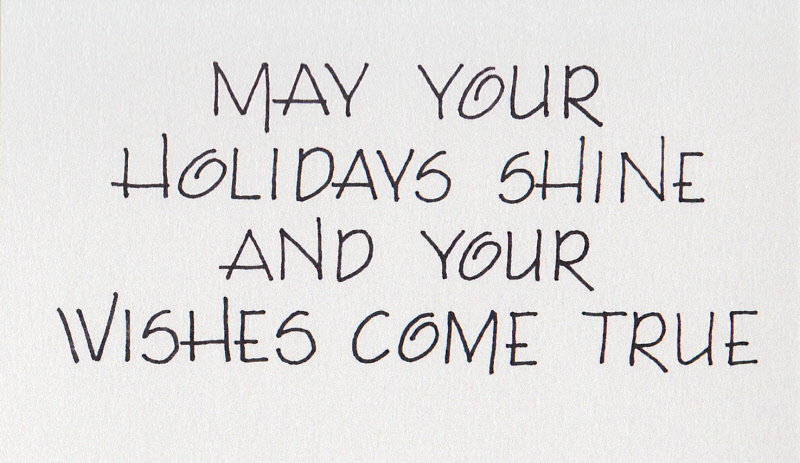 MAY YOUR
HOLIDAYS SHINE
AND YOUR
WISHES COME TRUE